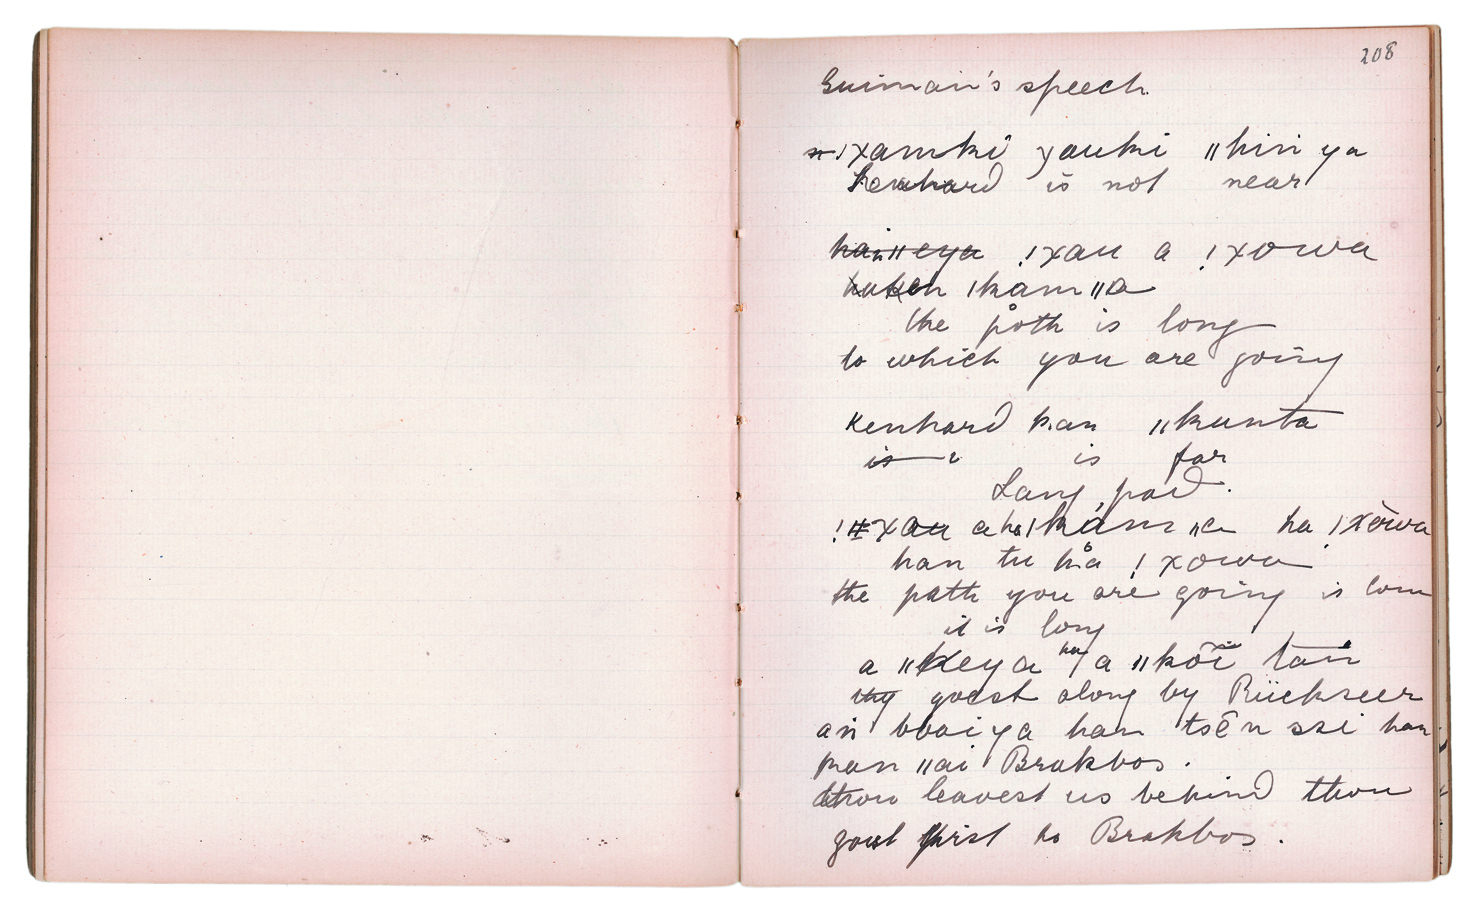 208
Guiman's speech
!χamki yauki ǁhin ya
Kenhard is not near
haiñǁeya !χau a !χowa
haken ǀkam ǁa
the path is long
to which you are going
Kenhard kan ǁkunta
is is far
Lang pad.
!χau a ha ǀkam ǁa ha !χōwa
han tu ka !χowa
the path you are going is
it is long
a ǁkeya ha a ǁkōi tan
thy goest along by Rückseer
an bbaiya han tsēn ssi han
kan ǁai Brakbos.
thou leavest us behind thou
goest first to Brakbos.